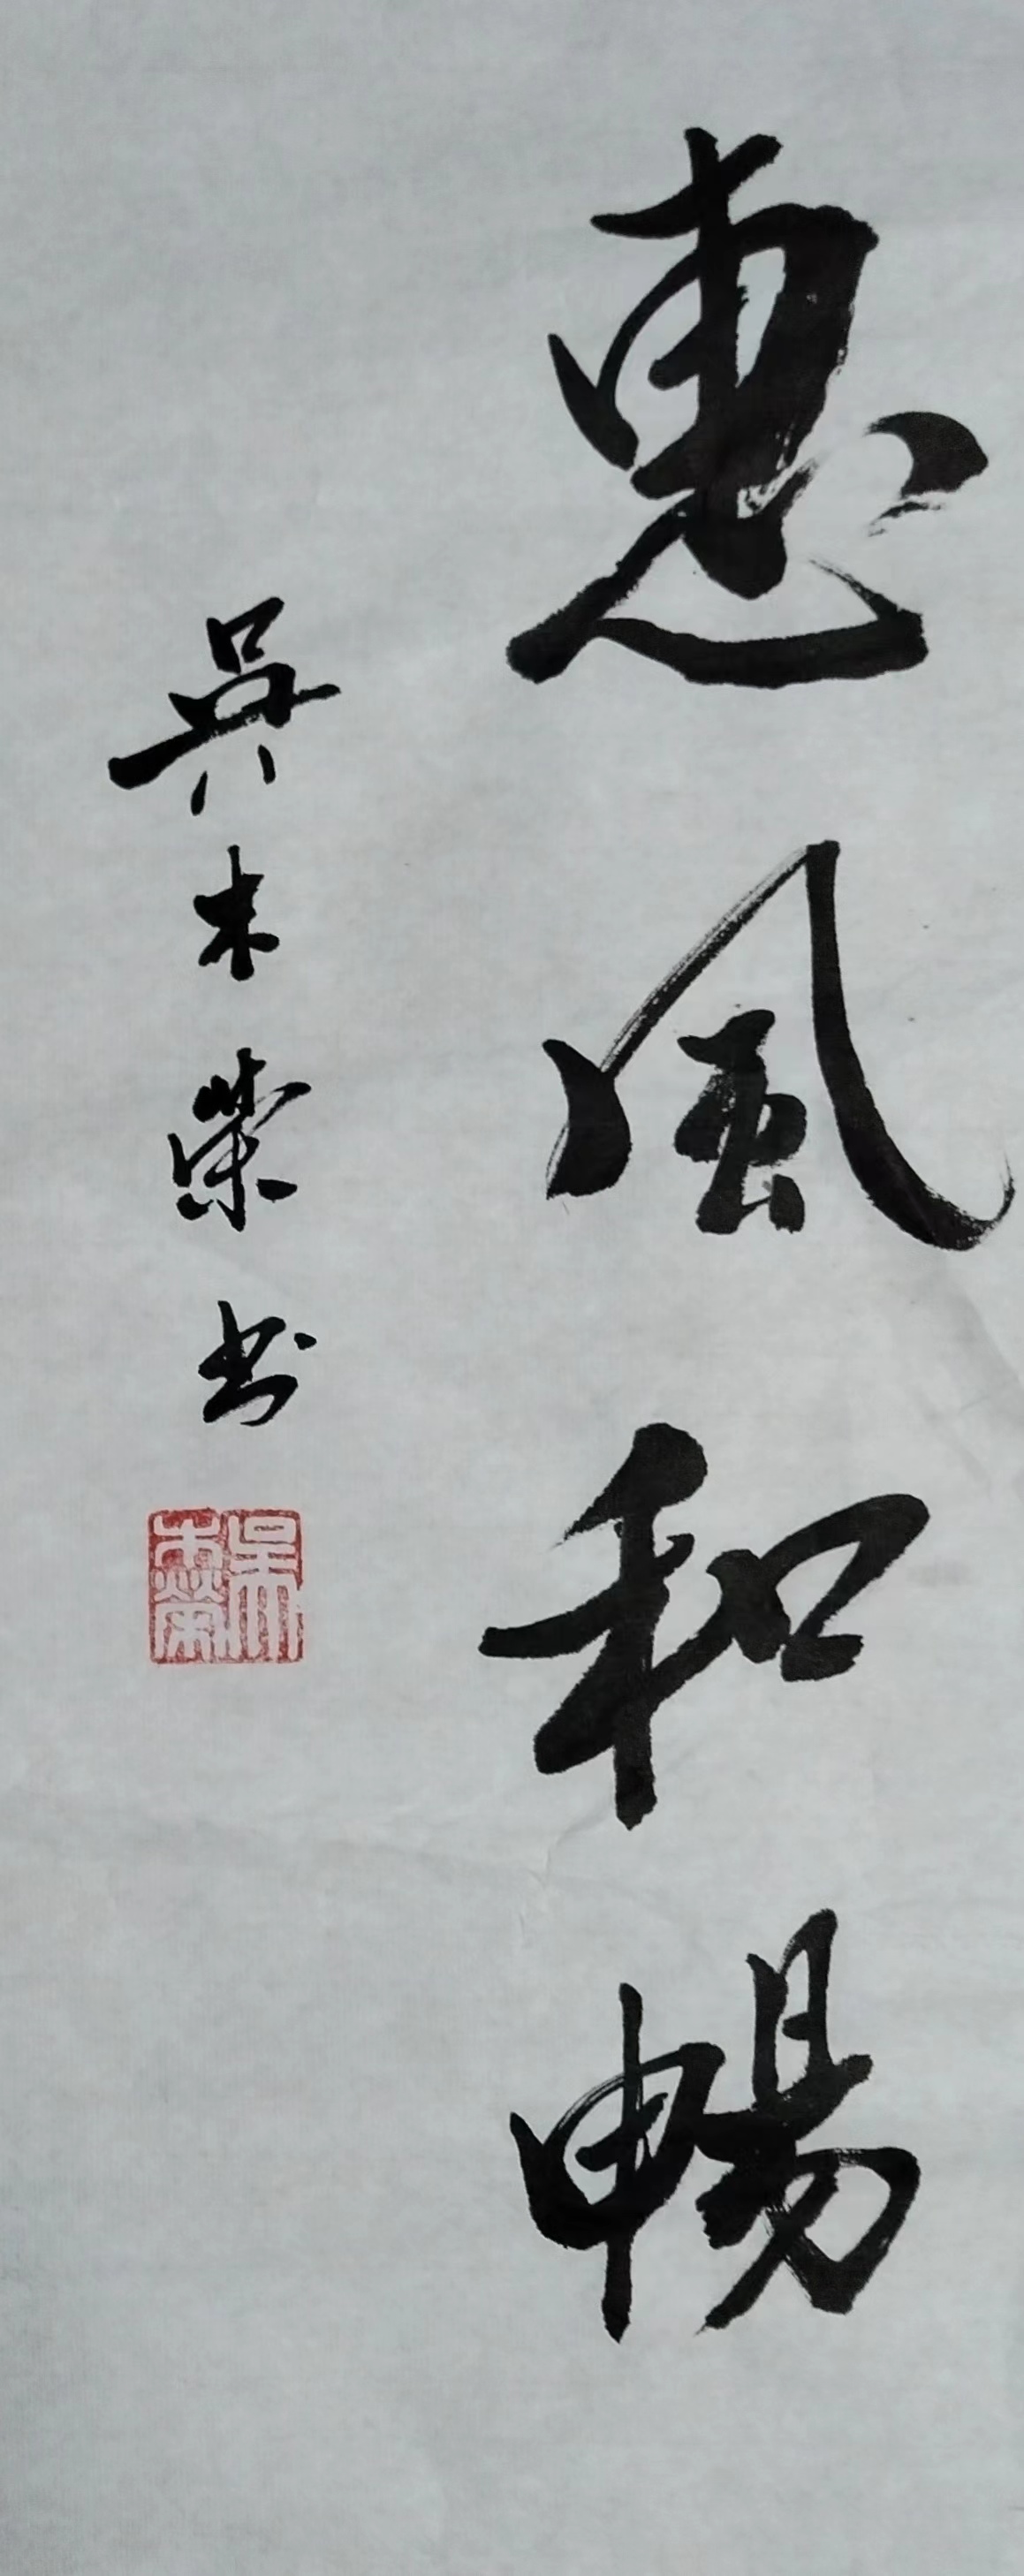 惠風和暢
吳未榮书
吳未榮